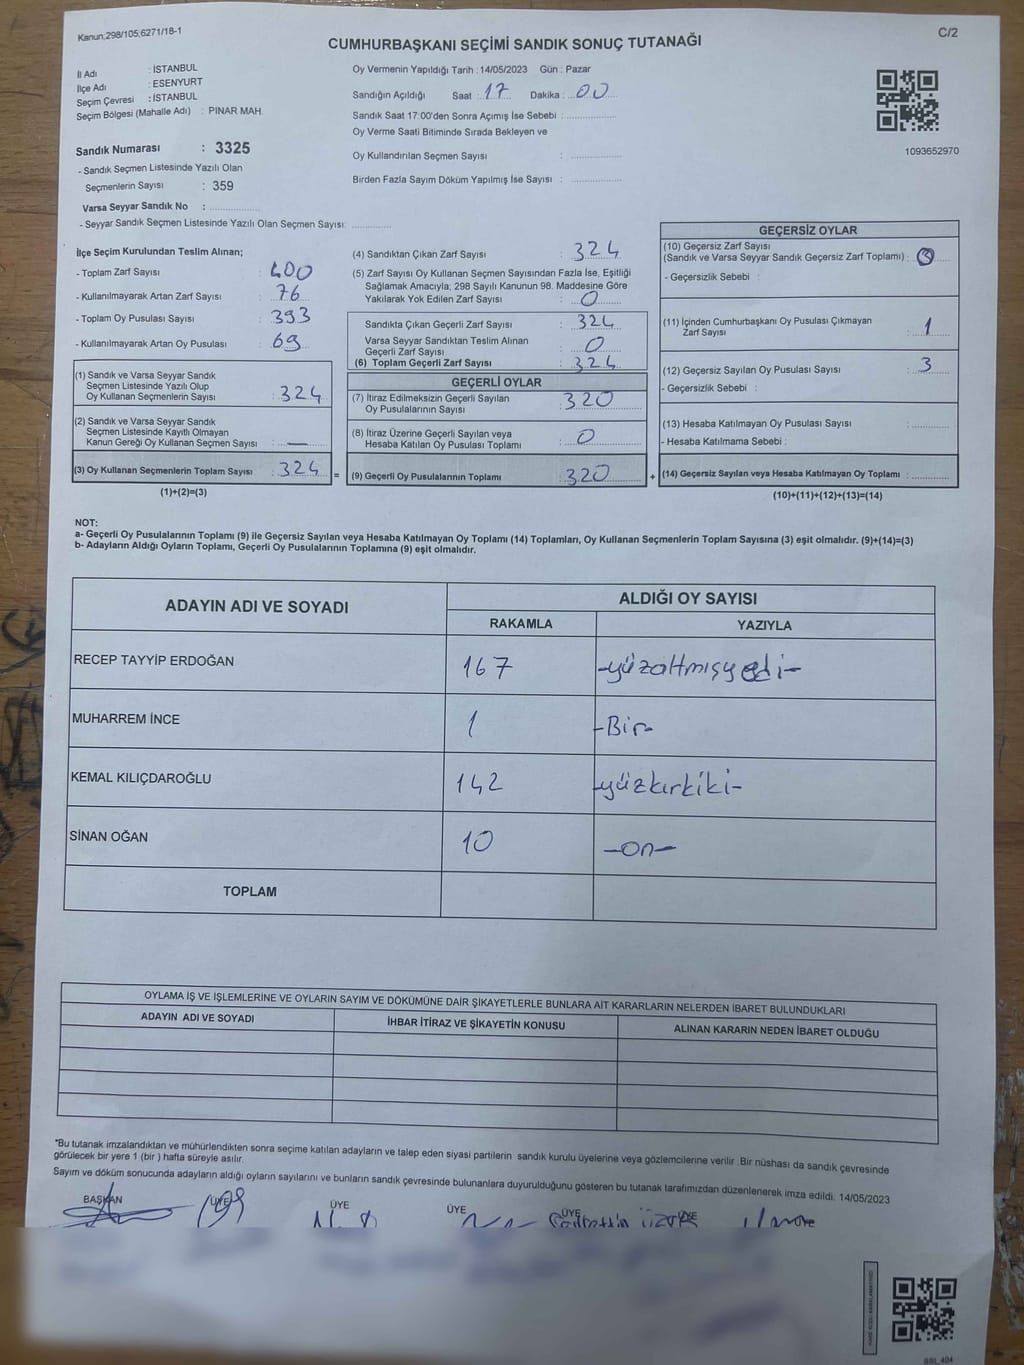 Kanun;298/105;6271/18-1
C/2
CUMHURBAŞKANI SEÇİMİ SANDIK SONUÇ TUTANAĞI
İl Adı : İSTANBUL
İlçe Adı : ESENYURT
Seçim Çevresi : İSTANBUL
Seçim Bölgesi (Mahalle Adı) : PINAR MAH.
Sandık Numarası : 3325
- Sandık Seçmen Listesinde Yazılı Olan
Seçmenlerin Sayısı : 359
Varsa Seyyar Sandık No :
- Seyyar Sandık Seçmen Listesinde Yazılı Olan Seçmen Sayısı:
Oy Vermenin Yapıldığı Tarih : 14/05/2023 Gün : Pazar
Sandığın Açıldığı Saat : 17 Dakika : 00
Sandık Saat 17:00'den Sonra Açımış İse Sebebi :
Oy Verme Saati Bitiminde Sırada Bekleyen ve
Oy Kullandırılan Seçmen Sayısı :
Birden Fazla Sayım Döküm Yapılmış İse Sayısı :
1093652970
İlçe Seçim Kurulundan Teslim Alınan;
- Toplam Zarf Sayısı : 400
- Kullanılmayarak Artan Zarf Sayısı : 76
- Toplam Oy Pusulası Sayısı : 393
- Kullanılmayarak Artan Oy Pusulası : 69
(1) Sandık ve Varsa Seyyar Sandık
Seçmen Listesinde Yazılı Olup
Oy Kullanan Seçmenlerin Sayısı : 324
(2) Sandık ve Varsa Seyyar Sandık
Seçmen Listesinde Kayıtlı Olmayan
Kanun Gereği Oy Kullanan Seçmen Sayısı : —
(3) Oy Kullanan Seçmenlerin Toplam Sayısı : 324 =
(1)+(2)=(3)
(4) Sandıktan Çıkan Zarf Sayısı : 324
(5) Zarf Sayısı Oy Kullanan Seçmen Sayısından Fazla İse, Eşitliği
Sağlamak Amacıyla; 298 Sayılı Kanunun 98. Maddesine Göre
Yakılarak Yok Edilen Zarf Sayısı : 0
Sandıkta Çıkan Geçerli Zarf Sayısı : 324
Varsa Seyyar Sandıktan Teslim Alınan
Geçerli Zarf Sayısı : 0
(6) Toplam Geçerli Zarf Sayısı : 324
GEÇERLİ OYLAR
(7) İtiraz Edilmeksizin Geçerli Sayılan
Oy Pusulalarının Sayısı : 320
(8) İtiraz Üzerine Geçerli Sayılan veya
Hesaba Katılan Oy Pusulası Toplamı : 0
(9) Geçerli Oy Pusulalarının Toplamı : 320 +
GEÇERSİZ OYLAR
(10) Geçersiz Zarf Sayısı
(Sandık ve Varsa Seyyar Sandık Geçersiz Zarf Toplamı) :
- Geçersizlik Sebebi :
(11) İçinden Cumhurbaşkanı Oy Pusulası Çıkmayan
Zarf Sayısı : 1
(12) Geçersiz Sayılan Oy Pusulası Sayısı : 3
- Geçersizlik Sebebi :
(13) Hesaba Katılmayan Oy Pusulası Sayısı :
- Hesaba Katılmama Sebebi :
(14) Geçersiz Sayılan veya Hesaba Katılmayan Oy Toplamı :
(10)+(11)+(12)+(13)=(14)
NOT:
a- Geçerli Oy Pusulalarının Toplamı (9) ile Geçersiz Sayılan veya Hesaba Katılmayan Oy Toplamı (14) Toplamları, Oy Kullanan Seçmenlerin Toplam Sayısına (3) eşit olmalıdır. (9)+(14)=(3)
b- Adayların Aldığı Oyların Toplamı, Geçerli Oy Pusulalarının Toplamına (9) eşit olmalıdır.
ADAYIN ADI VE SOYADI
ALDIĞI OY SAYISI
RAKAMLA YAZIYLA
RECEP TAYYİP ERDOĞAN 167 -yüzaltmışyedi-
MUHARREM İNCE 1 -Bir-
KEMAL KILIÇDAROĞLU 142 -yüzkırkiki-
SİNAN OĞAN 10 -on-
TOPLAM
OYLAMA İŞ VE İŞLEMLERİNE VE OYLARIN SAYIM VE DÖKÜMÜNE DAİR ŞİKAYETLERLE BUNLARA AİT KARARLARIN NELERDEN İBARET BULUNDUKLARI
ADAYIN ADI VE SOYADI İHBAR İTİRAZ VE ŞİKAYETİN KONUSU ALINAN KARARIN NEDEN İBARET OLDUĞU
*Bu tutanak imzalandıktan ve mühürlendikten sonra seçime katılan adayların ve talep eden siyasi partilerin sandık kurulu üyelerine veya gözlemcilerine verilir. Bir nüshası da sandık çevresinde
görülecek bir yere 1 (bir ) hafta süreyle asılır.
Sayım ve döküm sonucunda adayların aldığı oyların sayılarını ve bunların sandık çevresinde bulunanlara duyurulduğunu gösteren bu tutanak tarafımızdan düzenlenerek imza edildi. 14/05/2023
BAŞKAN ÜYE ÜYE ÜYE ÜYE